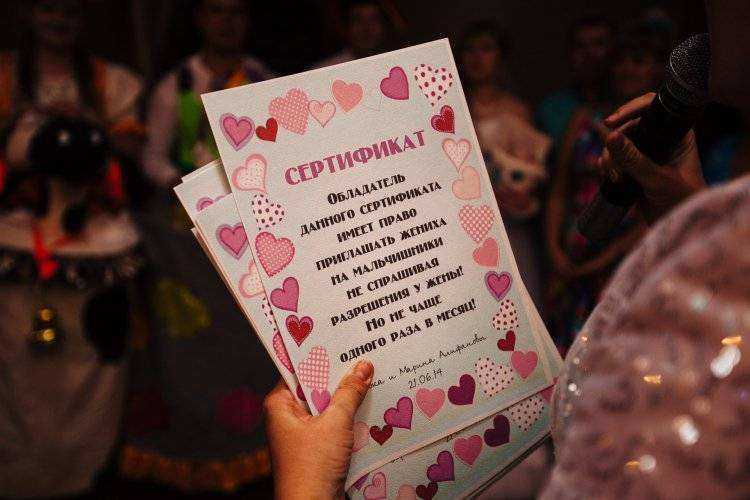 СЕРТИФИКАТ
ОБЛАДАТЕЛЬ
ДАННОГО СЕРТИФИКАТА
ИМЕЕТ ПРАВО
ПРИГЛАШАТЬ ЖЕНИХА
НА МАЛЬЧИШНИКИ
НЕ СПРАШИВАЯ
РАЗРЕШЕНИЯ У ЖЕНЫ!
НО НЕ ЧАЩЕ
ОДНОГО РАЗА В МЕСЯЦ!
и Марина Алифанова
21.06.14